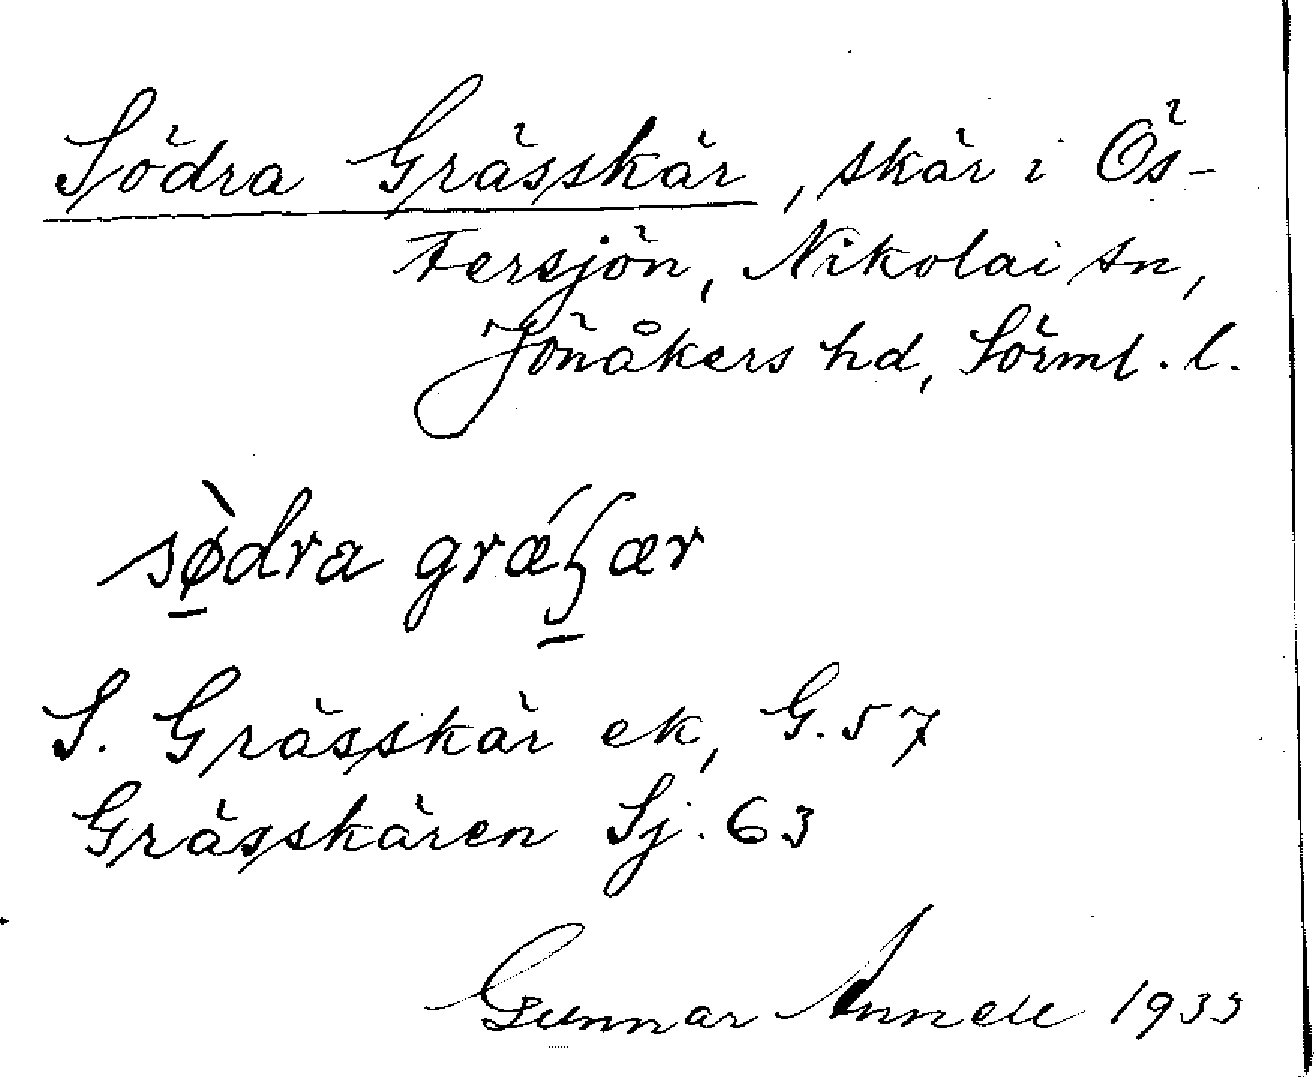 Södra Grässkär, skär i Ös-
tersjön, Nikolai sn,
Jönåkers hd, Sörml. l.
sø̀dra grǽʃær
S. Grässkär ek, G. 57
Grässkären Sj. 63
Gunnar Annell 1933